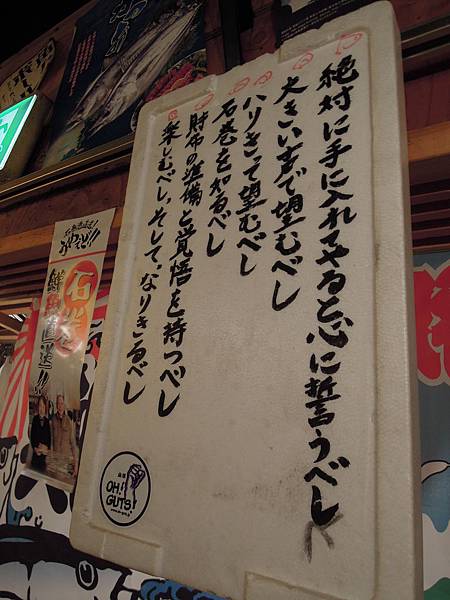 絶対に手に入れてやると心に誓うべし
大きい声で望むべし
ハリきって望むべし
石巻を知るべし
財布の準備と覚悟を持つべし
楽しむべし、そして、なりきるべし
石巻
直送!!
OH!
GUTS!